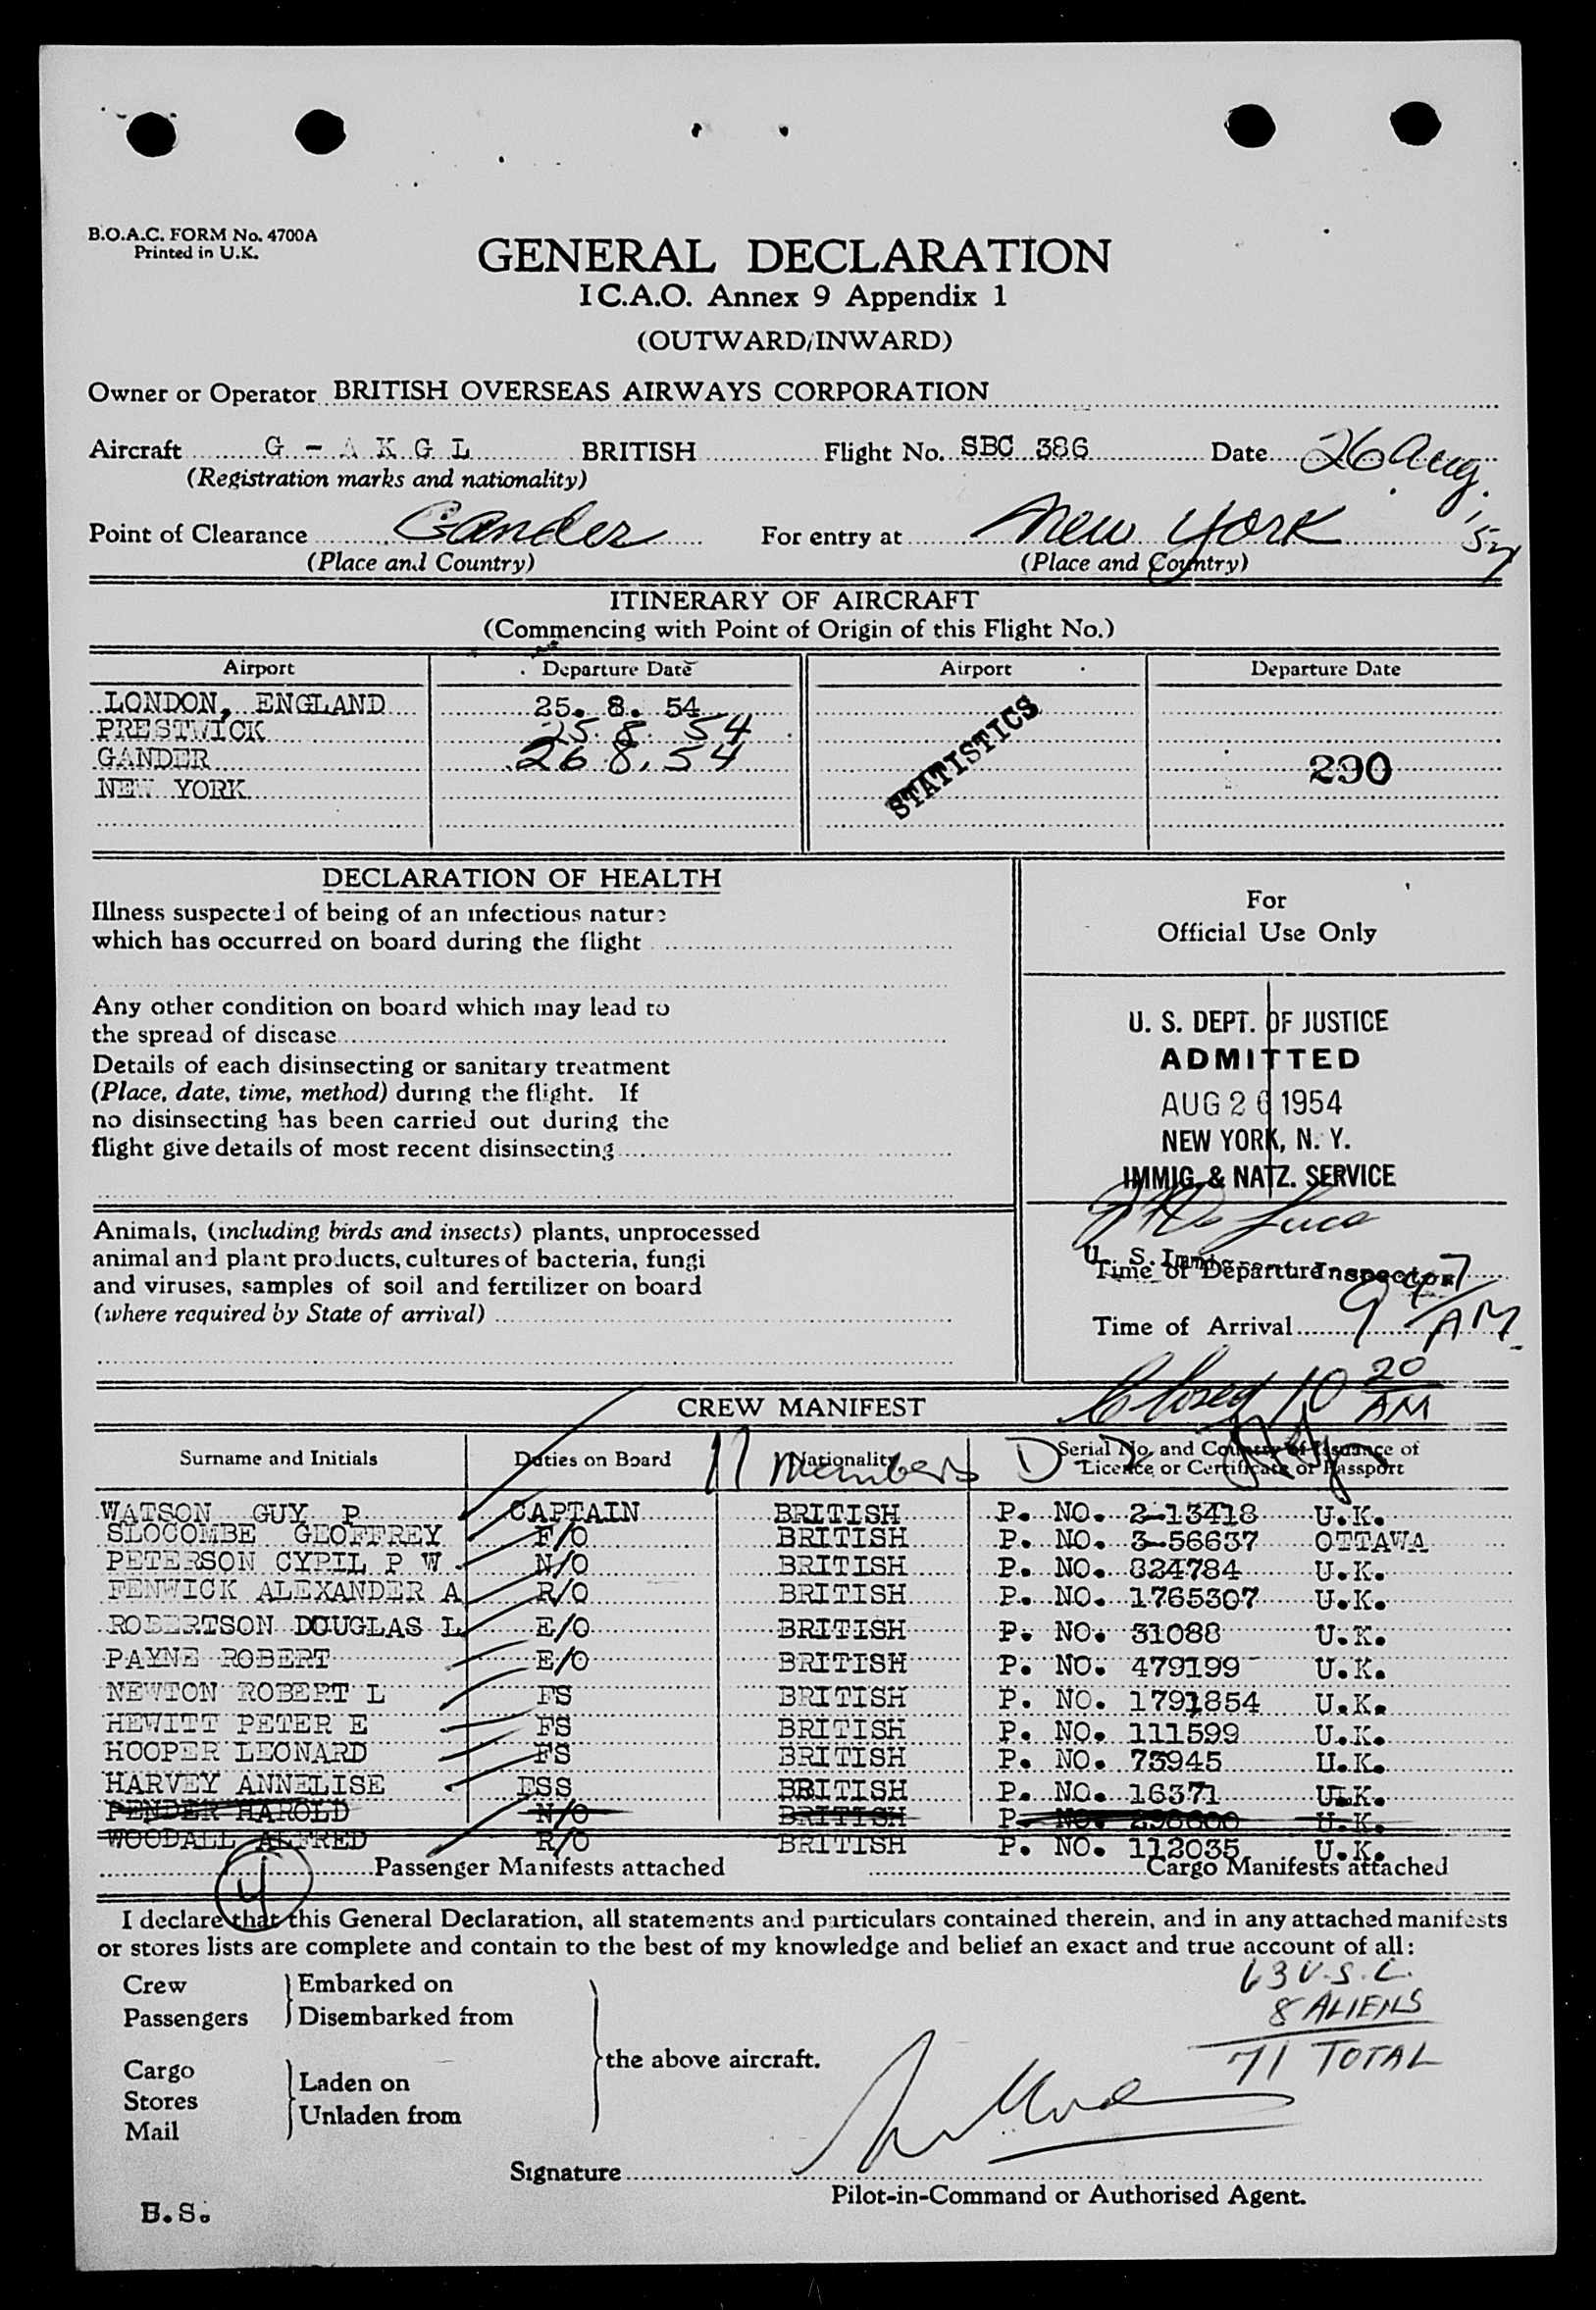 B.O.A.C. FORM No. 4700A
Printed in U.K.
GENERAL DECLARATION
I C.A.O. Annex 9 Appendix 1
(OUTWARD/INWARD)
Owner or Operator BRITISH OVERSEAS AIRWAYS CORPORATION
Aircraft G - A K G L BRITISH Flight No. SBC 386 Date 26 Aug. '54
(Registration marks and nationality)
Point of Clearance Gander For entry at New York
(Place and Country) (Place and Country)
ITINERARY OF AIRCRAFT
(Commencing with Point of Origin of this Flight No.)
Airport Departure Date Airport Departure Date
LONDON, ENGLAND 25. 8. 54
PRESTWICK 25. 8. 54
GANDER 26. 8. 54
NEW YORK
STATISTICS
290
DECLARATION OF HEALTH
Illness suspected of being of an infectious nature
which has occurred on board during the flight
Any other condition on board which may lead to
the spread of disease
Details of each disinsecting or sanitary treatment
(Place, date, time, method) during the flight. If
no disinsecting has been carried out during the
flight give details of most recent disinsecting
Animals, (including birds and insects) plants, unprocessed
animal and plant products, cultures of bacteria, fungi
and viruses, samples of soil and fertilizer on board
(where required by State of arrival)
For
Official Use Only
U. S. DEPT. OF JUSTICE
ADMITTED
AUG 26 1954
NEW YORK, N. Y.
IMMIG. & NATZ. SERVICE
U. S. Immigrant Inspector
Time of Departure
Time of Arrival 9 47 AM
Closed 10 20 AM
CREW MANIFEST
11 members
Surname and Initials Duties on Board Nationality Serial No. and Country of Issuance of
Licence or Certificate or Passport
WATSON GUY P CAPTAIN BRITISH P. NO. 2-13418 U.K.
SLOCOMBE GEOFFREY F/O BRITISH P. NO. 3-56637 OTTAWA
PETERSON CYRIL P W N/O BRITISH P. NO. 824784 U.K.
FENWICK ALEXANDER A R/O BRITISH P. NO. 1765307 U.K.
ROBERTSON DOUGLAS L E/O BRITISH P. NO. 31088 U.K.
PAYNE ROBERT E/O BRITISH P. NO. 479199 U.K.
NEWTON ROBERT L FS BRITISH P. NO. 1791854 U.K.
HEWITT PETER E FS BRITISH P. NO. 111599 U.K.
HOOPER LEONARD FS BRITISH P. NO. 73945 U.K.
HARVEY ANNELISE FSS BRITISH P. NO. 16371 U.K.
PENDER HAROLD N/O BRITISH P. NO. U.K.
WOODALL ALFRED R/O BRITISH P. NO. 112035 U.K.
4 Passenger Manifests attached Cargo Manifests attached
I declare that this General Declaration, all statements and particulars contained therein, and in any attached manifests
or stores lists are complete and contain to the best of my knowledge and belief an exact and true account of all:
Crew Embarked on
Passengers Disembarked from
the above aircraft.
Cargo
Stores
Mail
Laden on
Unladen from
63 U.S.C.
8 ALIENS
71 TOTAL
Signature
Pilot-in-Command or Authorised Agent.
B.S.